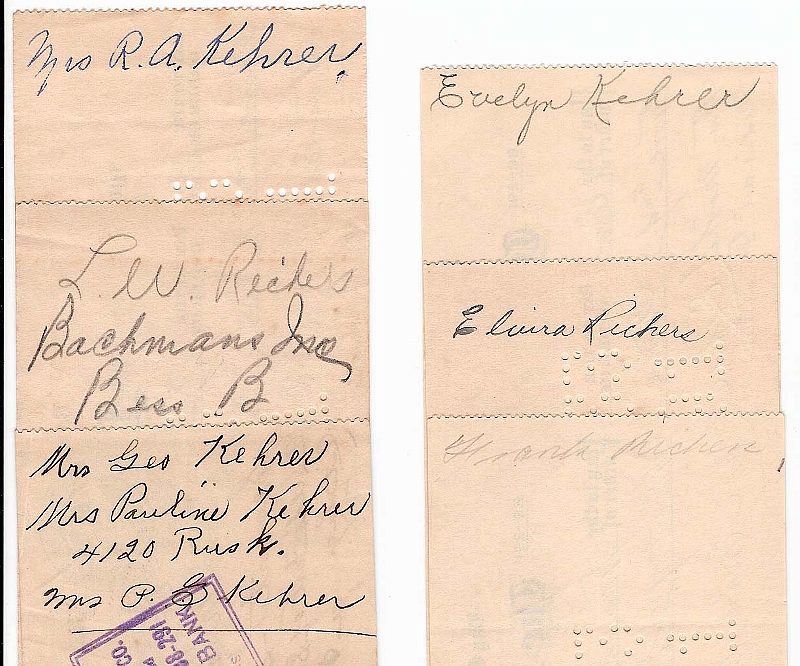 Mrs R.A. Kehrer
L. W. Richers
Bachmans Inc
Bess B
Mrs Geo Kehrer
Mrs Pauline Kehrer
4120 Rusk.
Mrs P. E Kehrer
BANK
98-291
CO.
Evelyn Kehrer
Elvira Richers
Frank Richers